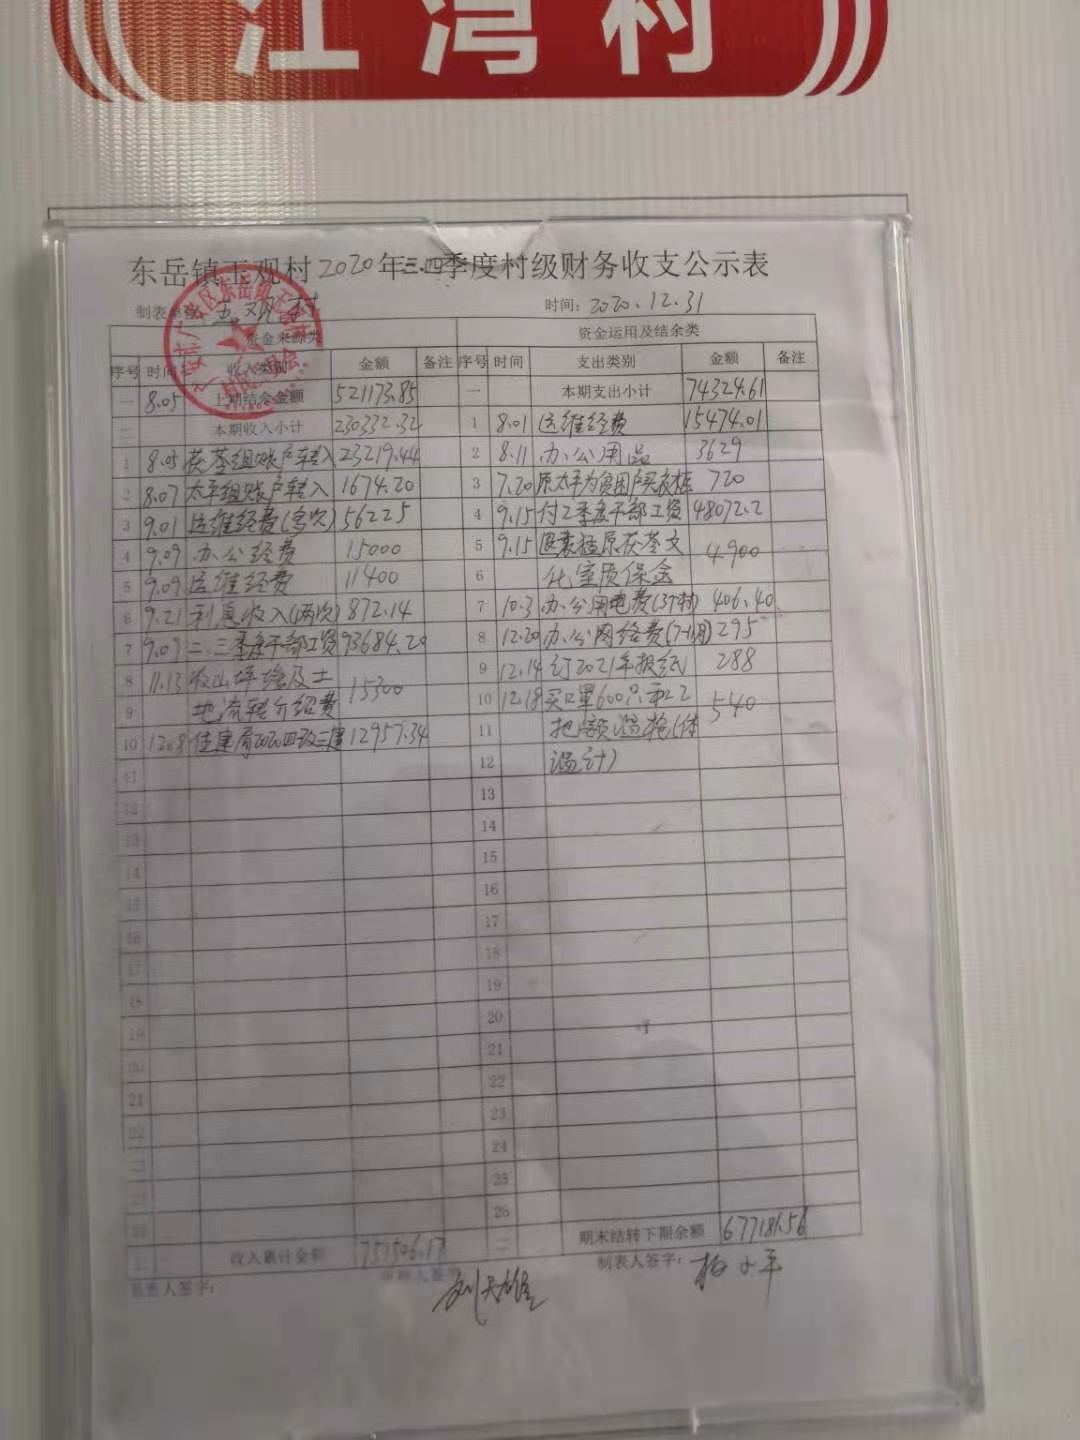 江湾村
东岳镇玉观村2020年三.四季度村级财务收支公示表
制表单位: 玉观村 时间: 2020.12.31
资金来源类 资金运用及结余类
序号 时间 收入类别 金额 备注 序号 时间 支出类别 金额 备注
一 8.05 上期结余金额 521173.85 一 本期支出小计 74324.61
二 本期收入小计 230332.32 1 8.01 运维经费 15474.01
1 8.05 茯苓组账户转入 23219.44 2 8.11 办公用品 3629
2 8.07 太平组账户转入 1674.20 3 7.20 原太平为贫困户买衣柜 720
3 9.01 运维经费(多次) 56225 4 9.15 付2季度干部工资 48072.2
4 9.09 办公经费 15000 5 9.15 原茯苓文 4900
5 9.09 运维经费 11400 6 化室质保金
6 9.21 利息收入(两次) 872.14 7 10.3 办公用电费(3个月) 406.40
7 9.09 二、三季度干部工资 93684.20 8 12.20 办公网络费 295
8 11.13 收山坪塘及土 15300 9 12.14 订2021年报纸 288
9 地流转介绍费 10 12.18 买口罩600只和2 540
10 12.8 住建局2020四改三建 12957.34 11 把额温枪(体
11 12 温计)
12 13
13 14
14 15
15 16
16 17
17 18
18 19
19 20
20 21
21 22
22 23
23 24
24 25
25 26
三 收入累计金额 751506.17 二 期末结转下期余额 677181.56
负责人签字: 审核人签字: 刘天雄 制表人签字: 杨小平